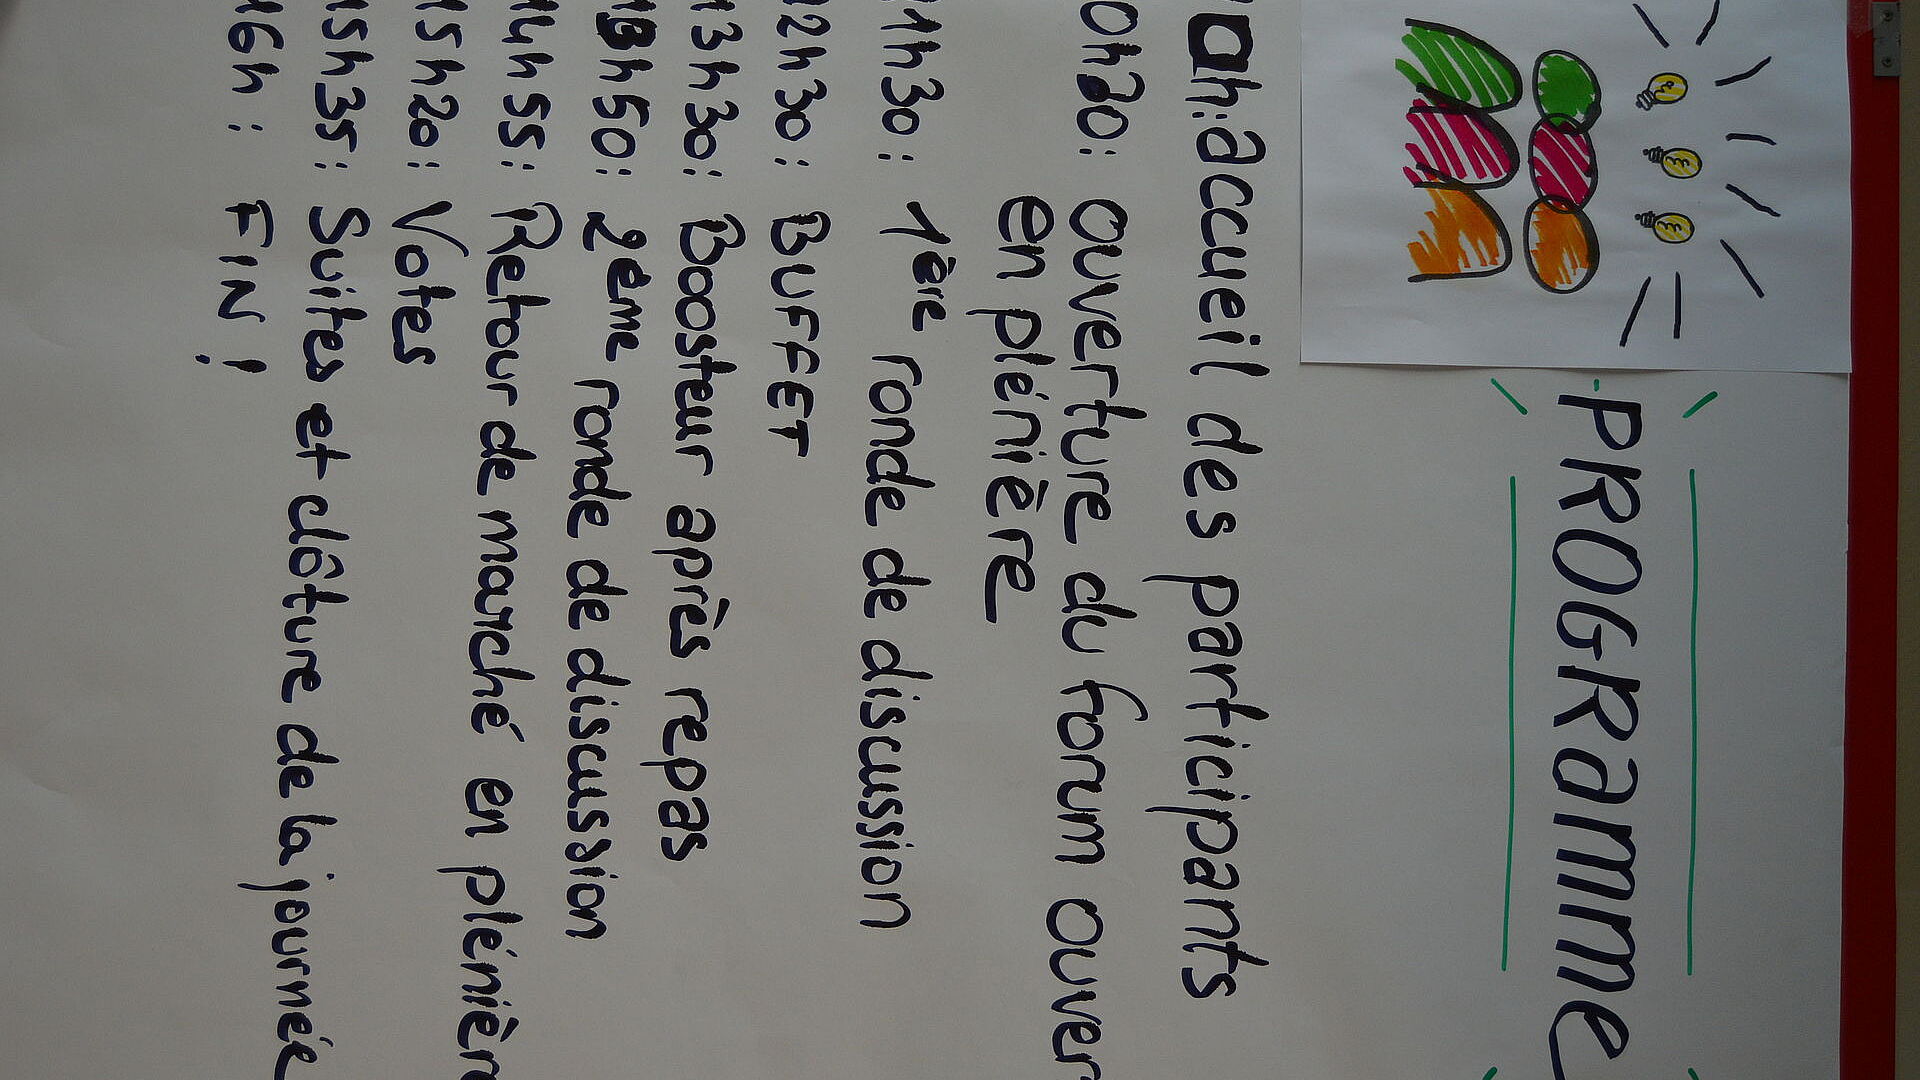 PROGRAMME
10h: accueil des participants
10h30: ouverture du forum ouver
en plénière
11h30: 1ère ronde de discussion
12h30: BUFFET
13h30: Boosteur après repas
13h50: 2ème ronde de discussion
14h55: Retour de marché en plénièr
15h20: Votes
15h35: Suites et clôture de la journée
16h: FIN!